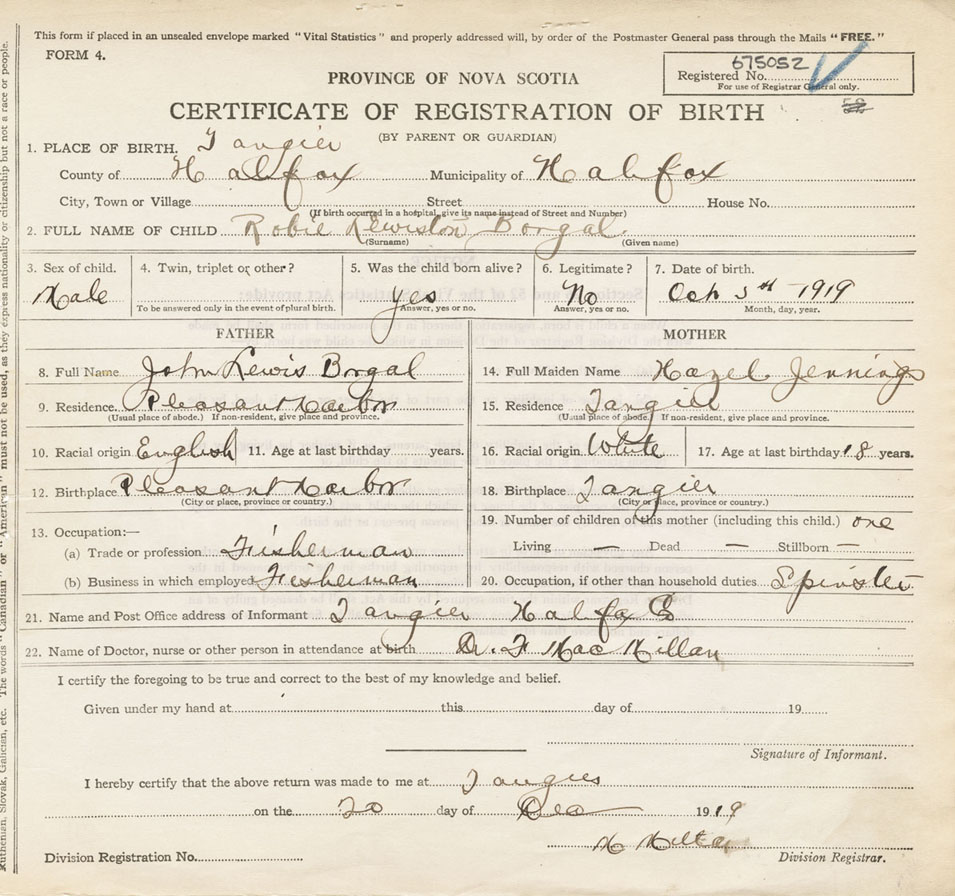 This form if placed in an unsealed envelope marked "Vital Statistics" and properly addressed will, by order of the Postmaster General pass through the Mails "FREE."
FORM 4.
675052
Registered No.
For use of Registrar General only.
PROVINCE OF NOVA SCOTIA
CERTIFICATE OF REGISTRATION OF BIRTH
(BY PARENT OR GUARDIAN)
1. PLACE OF BIRTH. Tangier
County of Halifax Municipality of Halifax
City, Town or Village Street House No.
(If birth occurred in a hospital, give its name instead of Street and Number)
2. FULL NAME OF CHILD Robie Lewiston Borgal
(Surname) (Given name)
3. Sex of child. 4. Twin, triplet or other? 5. Was the child born alive? 6. Legitimate? 7. Date of birth.
Male yes No Oct 1919
To be answered only in the event of plural birth. Answer, yes or no. Answer, yes or no. Month, day, year.
FATHER MOTHER
8. Full Name John Lewis Borgal 14. Full Maiden Name Hazel Jennings
9. Residence Pleasant Harbor 15. Residence Tangier
(Usual place of abode.) If non-resident, give place and province. (Usual place of abode.) If non-resident, give place and province.
10. Racial origin English 11. Age at last birthday years. 16. Racial origin White 17. Age at last birthday 18 years.
12. Birthplace Pleasant Harbor 18. Birthplace Tangier
(City or place, province or country.) (City or place, province or country.)
13. Occupation:— 19. Number of children of this mother (including this child.) one
(a) Trade or profession Fisherman Living — Dead — Stillborn —
(b) Business in which employed Fisherman 20. Occupation, if other than household duties Spinster
21. Name and Post Office address of Informant Tangier Halifax Co
22. Name of Doctor, nurse or other person in attendance at birth Dr. F MacMillan
I certify the foregoing to be true and correct to the best of my knowledge and belief.
Given under my hand at this day of 19
Signature of Informant.
I hereby certify that the above return was made to me at Tangier
on the 20 day of Dec 1919
Division Registration No. Division Registrar.
Ruthenian, Slovak, Galician, etc. The words "Canadian" or "American" must not be used, as they express nationality or citizenship but not a race or people.